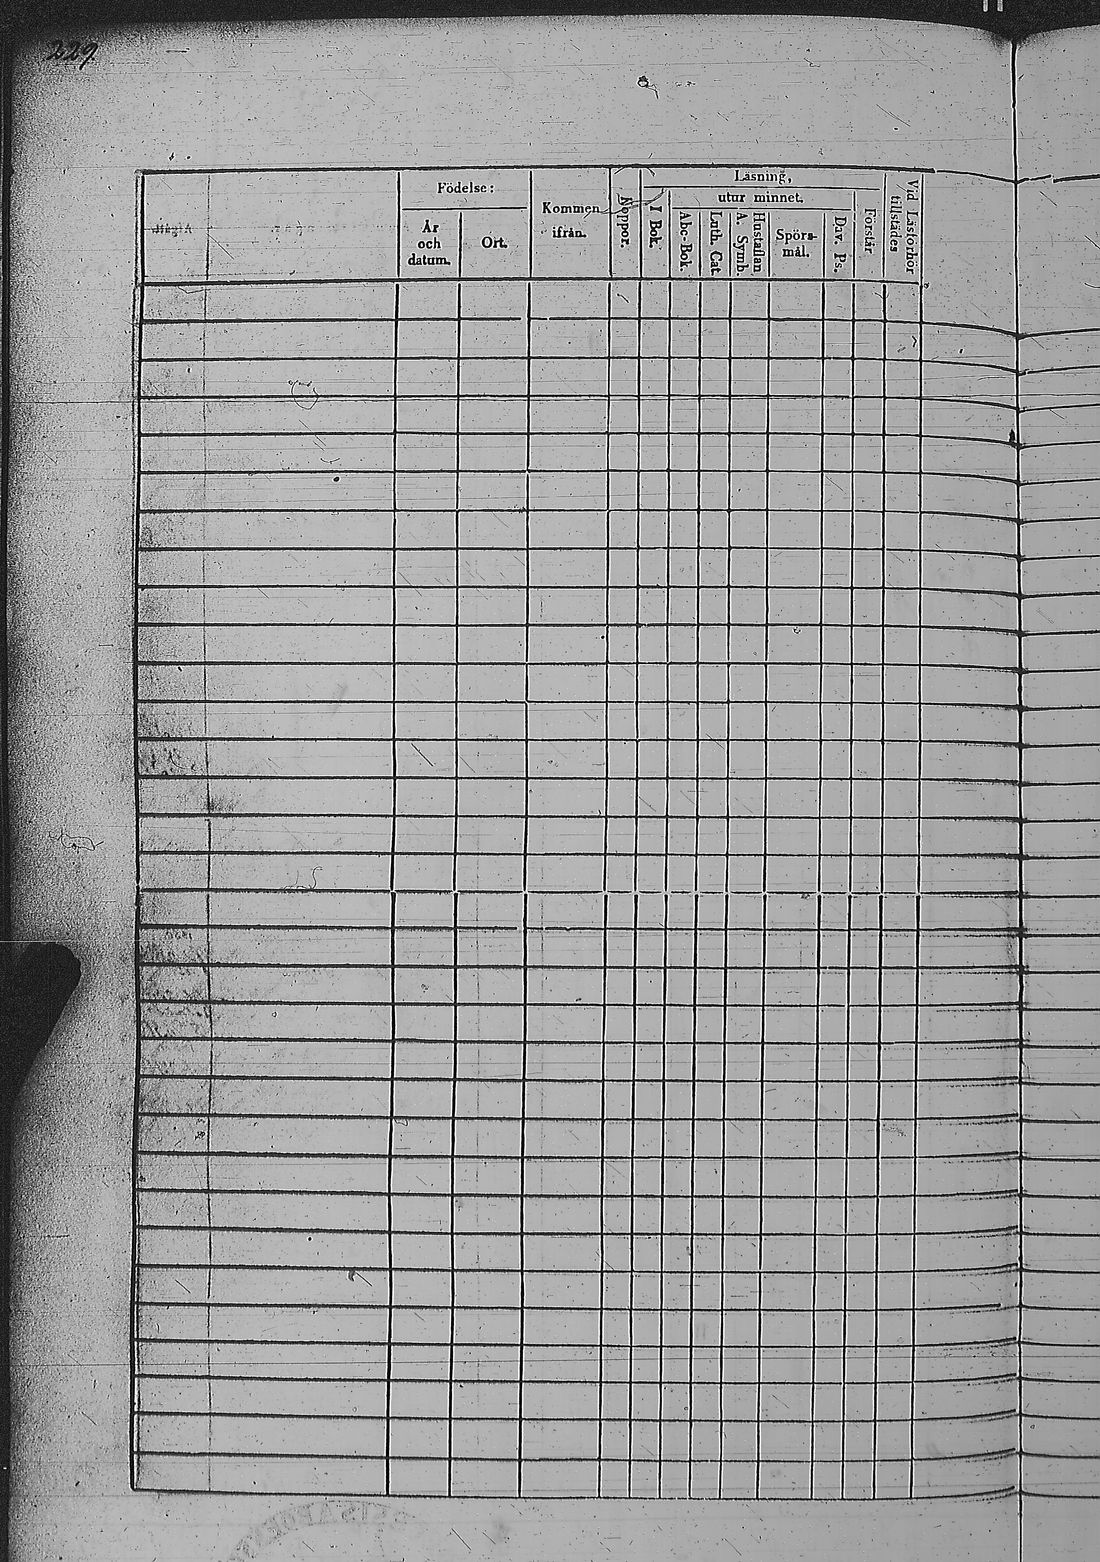 229.
Födelse:
År
och
datum.
Ort.
Kommen
ifrån.
Koppor.
Läsning,
I Bok.
utur minnet.
Abc-Bok.
Luth. Cat.
Hustaflan
A. Symb.
Spörs-
mål.
Dav. Ps.
Förstår.
Vid Läsförhör
tillstädes